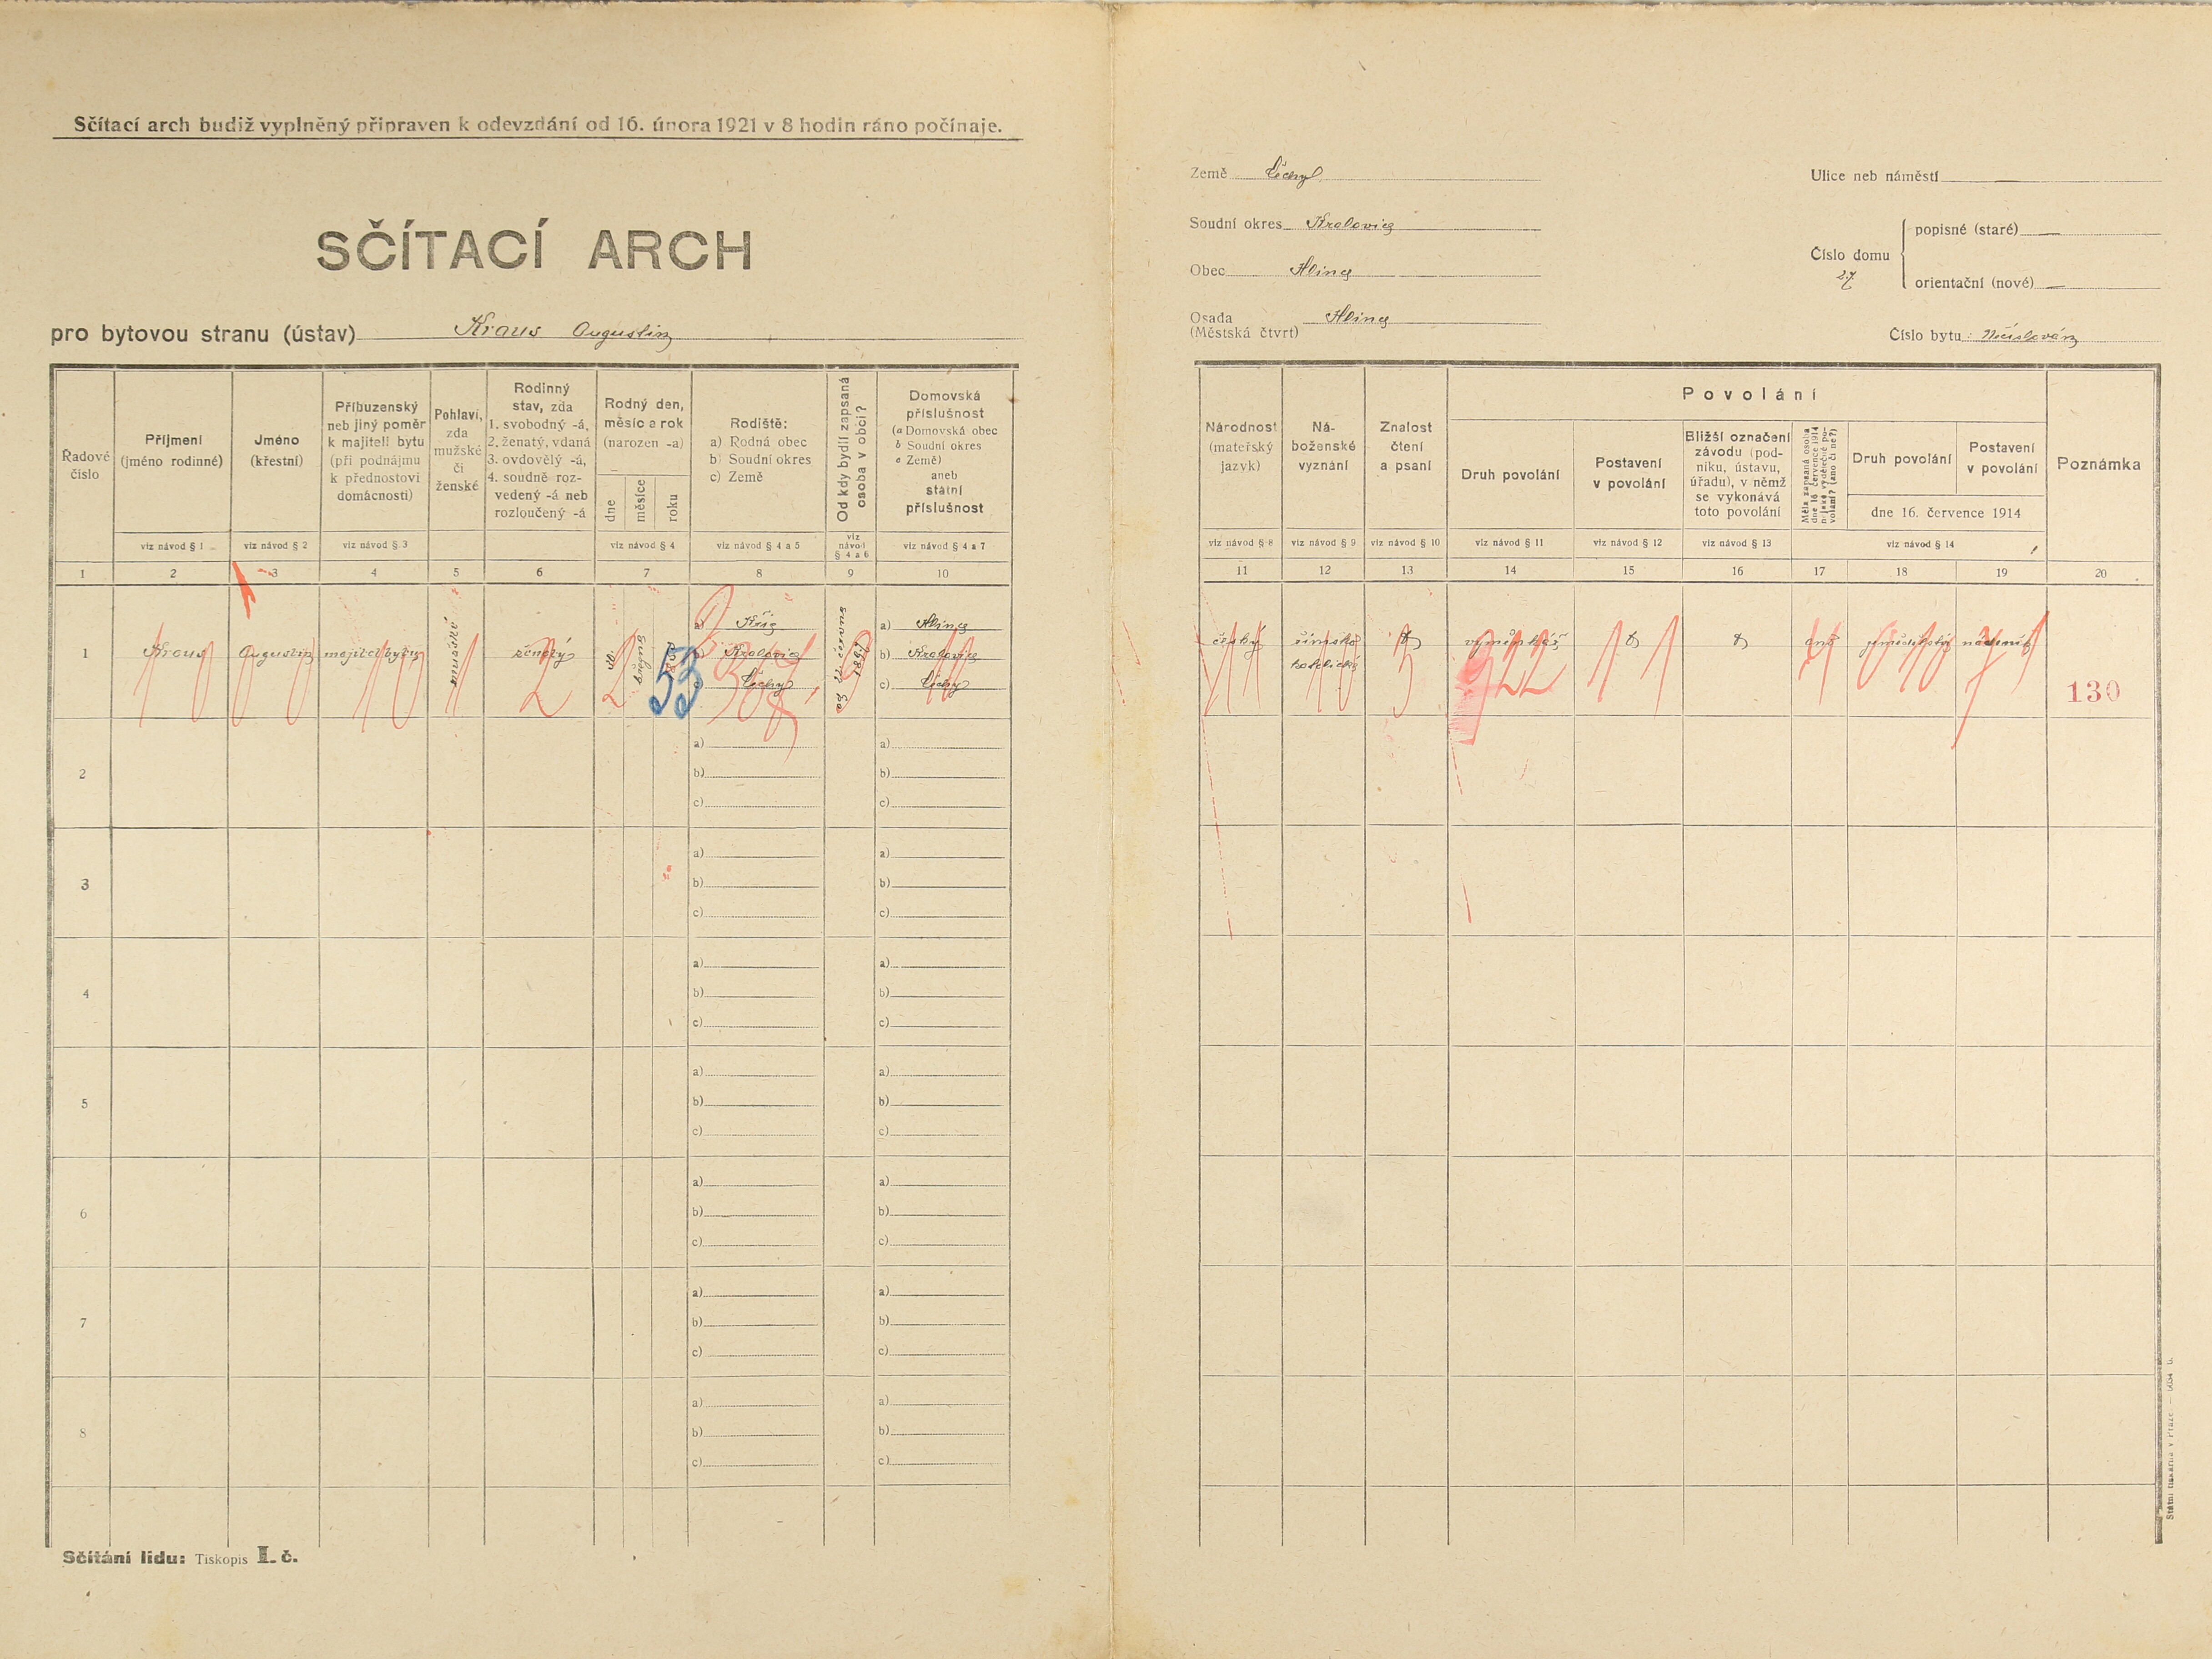 Sčítací arch budiž vyplněný připraven k odevzdání od 16. února 1921 v 8 hodin ráno počínaje.
SČÍTACÍ ARCH
pro bytovou stranu (ústav) Kraus Augustin
Řadové číslo
Příjmení (jméno rodinné)
Jméno (křestní)
Příbuzenský neb jiný poměr k majiteli bytu (při podnájmu k přednostovi domácnosti)
Pohlaví, zda mužské či ženské
Rodinný stav, zda 1. svobodný -á, 2. ženatý, vdaná 3. ovdovělý -á, 4. soudně roz- vedený -á neb rozloučený -á
Rodný den, měsíc a rok (narozen -a)
dne
měsíce
roku
Rodiště: a) Rodná obec b) Soudní okres c) Země
Od kdy bydlí zapsaná osoba v obci?
Domovská příslušnost (a Domovská obec b Soudní okres c Země) aneb státní příslušnost
viz návod § 1
viz návod § 2
viz návod § 3
viz návod § 4
viz návod § 4 a 5
viz návod § 4 a 6
viz návod § 4 a 7
1 2 3 4 5 6 7 8 9 10
1 Kraus Augustin majitel bytu mužské ženatý
a) Kříc
b) Kralovice
c) Čechy
53
1897
a) Hlince
b) Kralovice
c) Čechy
2 a) a)
b) b)
c) c)
3 a) a)
b) b)
c) c)
4 a) a)
b) b)
c) c)
5 a) a)
b) b)
c) c)
6 a) a)
b) b)
c) c)
7 a) a)
b) b)
c) c)
8 a) a)
b) b)
c) c)
Sčítání lidu: Tiskopis I. č.
Země Čechy
Soudní okres Kralovice
Obec Hlince
Osada Hlince
(Městská čtvrt)
Ulice neb náměstí —
Číslo domu 27
popisné (staré) —
orientační (nové) —
Číslo bytu: Nečíslován
Národnost (mateřský jazyk)
Ná- boženské vyznání
Znalost čtení a psaní
Povolání
Druh povolání
Postavení v povolání
Bližší označení závodu (pod- niku, ústavu, úřadu), v němž se vykonává toto povolání
Měla zapsaná osoba dne 16 července 1914 nějaké výdělečné po- volání? (ano či ne?)
Druh povolání
Postavení v povolání
dne 16. července 1914
Poznámka
viz návod § 8
viz návod § 9
viz návod § 10
viz návod § 11
viz návod § 12
viz návod § 13
viz návod § 14
11 12 13 14 15 16 17 18 19 20
česká římsko katolické výměnkář ano nádeník
922
130